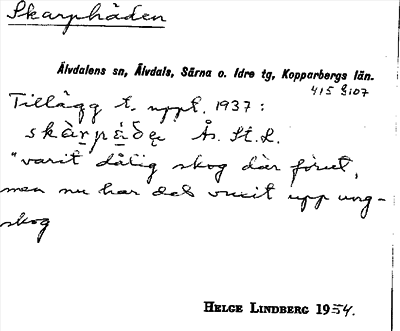 Skarphäden
Älvdalens sn, Älvdals, Särna o. Idre tg, Kopparbergs län.
415 8:07
Tillägg t. uppt. 1937:
skàrpǻðę Ås. St. L.
"varit dålig skog där förut,
men nu har det vuxit upp ung-
skog
HELGE LINDBERG 1954.